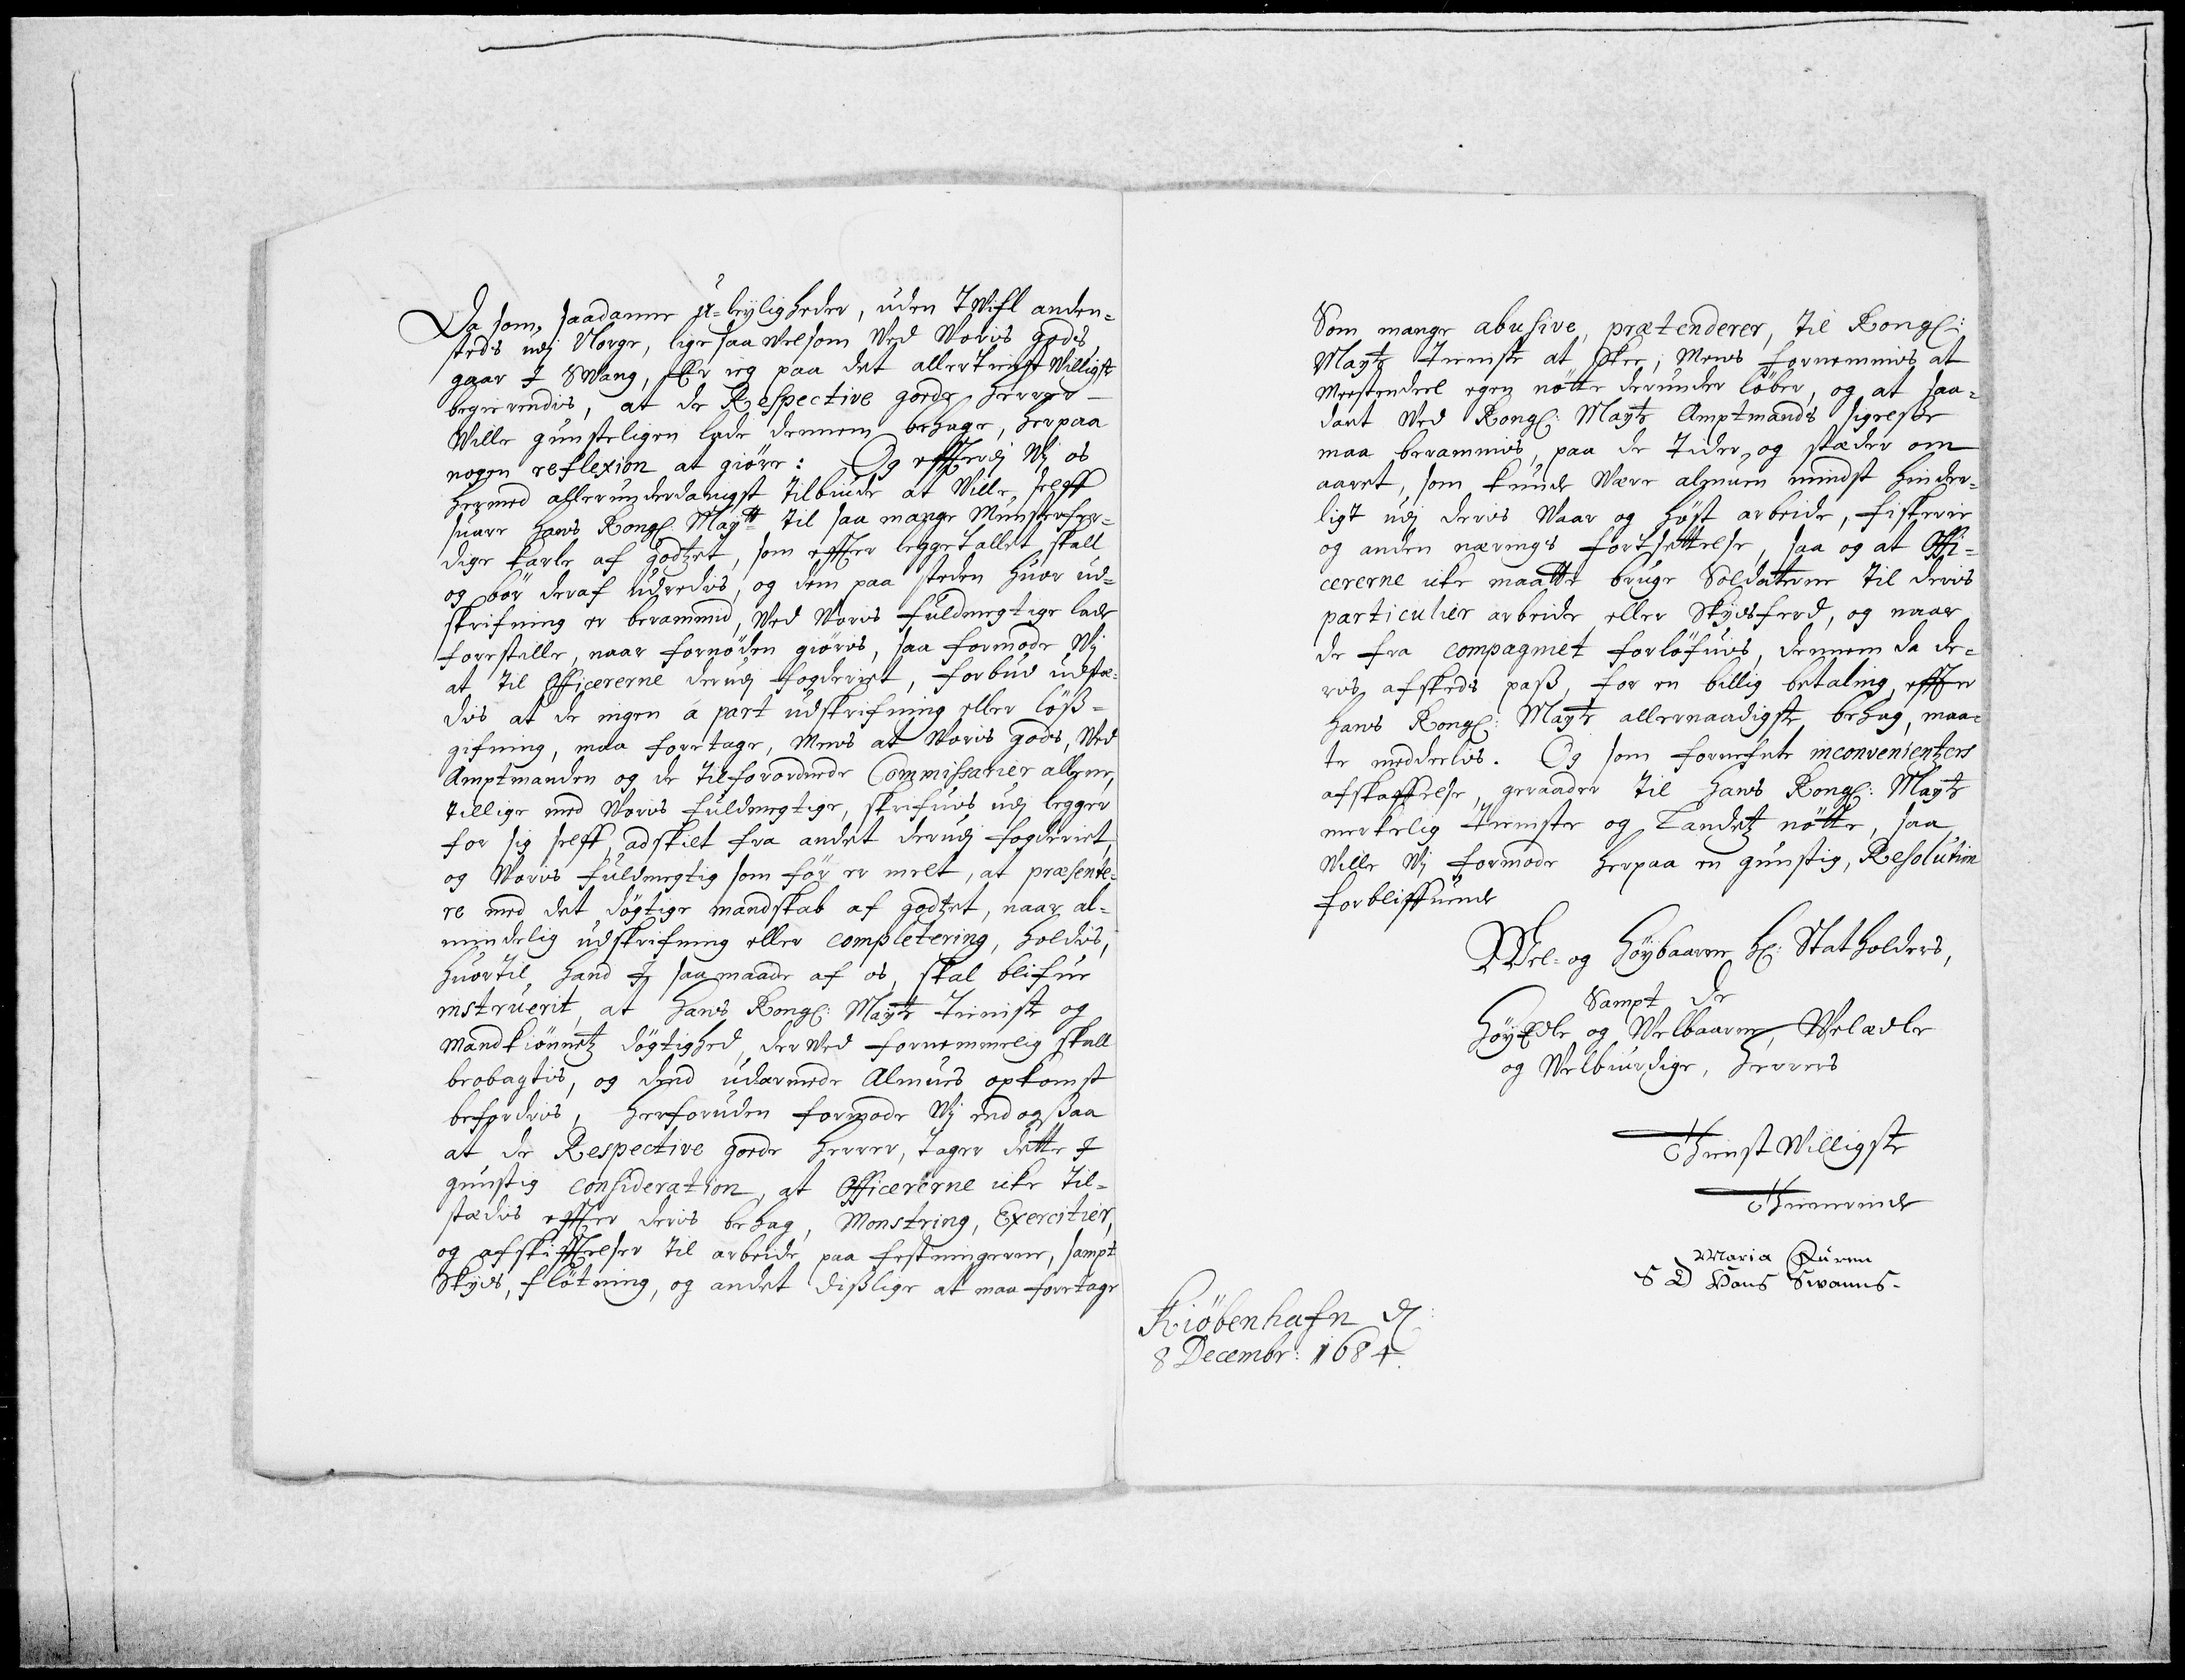 Da som, saadanne u-beyligheder, uden Twifl anden-
steds udj Norge, lige saa vel som Ved Voris gods
gaar J Swang, Er ieg paa det allertienstWilligst
begierendis, at de Respective gode Herrer
Wille gunsteligen lade dennem behage, herpaa
nogen reflexion at giöre: Og effterdj Wj os
hermed allerunderdanigst tilbiude at Wille selff
suare Hans Kongl: Maytt til saa mange Munsterfer-
dige karle af Godtzet, som effter leggetallet skall
og bör deraf udredis, og dem paa steden huor ud-
skrifning er berammid, Ved Voris fuldmegtige lade
forestille, naar fornöden giöris, saa formode Wj
at til Officererne derudj fogderiet, forbud udstæ-
dis at de ingen á part udskrifning eller löß-
gifning, maa foretage, Mens at Voris gods, Ved
Amptmanden og de tilforordnede Commissarier allene,
tillige med Voris fuldmegtige, skrifuis udj legger
for sig selff, adskilt fra andet derudj fogderiet,
og Voris fuldmegtig som för er melt, at præsente-
re med det dögtige mandskab af godtzet, naar al-
mindelig udskrifning eller completering, holdis,
huortil hand J saa maade af os, skal blifue
instruerit, at Hans Kongl: Maytz Tienist og
Mandkiönnetz dögtighed, der Ved fornemmelig skall
beobagtis, og dend udarmede Almues opkomst
befordris, herforuden formode Wj endogsaa
at de Respective gode Herrer, tager dette J
gunstig consideration, at Officererne icke til-
stædis effter deris behag, Monstring, Exercitier,
og afskiffelser til arbeide paa festningerne, sampt
Skyds, flötning, og andet dißlige at maa foretage
Som mange abusive, prætenderer, til Kongl:
Maytz Tieniste at skee, Mens fornemmis at
Meestendeel egen nötte derunder löber, og at saa-
dant Ved Kongl: Maytz Amptmands sigelse
maa berammis, paa de Tider og stæder om
aaret, som kunde Være almuen mindst hinder-
ligt udj deris Waar og höst arbeide, fiskerie
og anden nærings fortsettelse, saa og at Offi-
cererne icke maatte bruge Soldatterne til deris
particulier arbeide eller Skydsferd, og naar
de fra compagniet forlöfuis, dennem da de-
ris afskeds paß, for en billig betaling, effter
Hans Kongl: Maytz allernaadigste behag, maa-
te meddeelis. Og som fornefnte inconvenientzers
afskaffelse, geraader til Hans Kongl: Maytz
merkelig tieniste og Landetz nötte, saa
Wille Wj formode herpaa en gunstig, Resolution
forbliffuende
Wel- og Höybaarne Hl: Statholders,
Sampt de
HöyEdle og Welbaarne, Welædle
og Welbiurdige, Herrers
ThienstWilligste
Thienerinde
Maria
S Hans Swanns.
Kiöbenhafn dl:
8 Decembr: 1684.